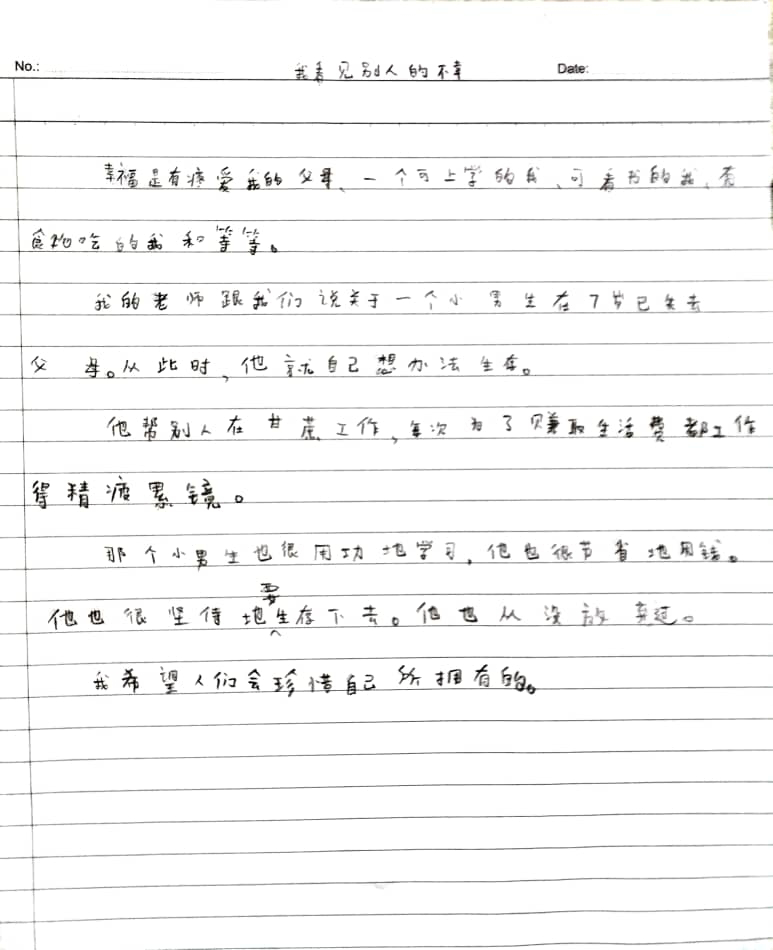 No.: 我看见别人的不幸 Date:
幸福是有疼爱我的父母、一个可上学的我、可看书的我、有
食物吃的我和等等。
我的老师跟我们说关于一个小男生在7岁已失去
父母。从此时，他就自己想办法生存。
他帮别人在甘蔗工作，每次为了赚取生活费都工作
得精疲累镜。
那个小男生也很用功地学习，他也很节省地用钱。
他也很坚侍地要生存下去。他也从没放弃过。
我希望人们会珍惜自己所拥有的。